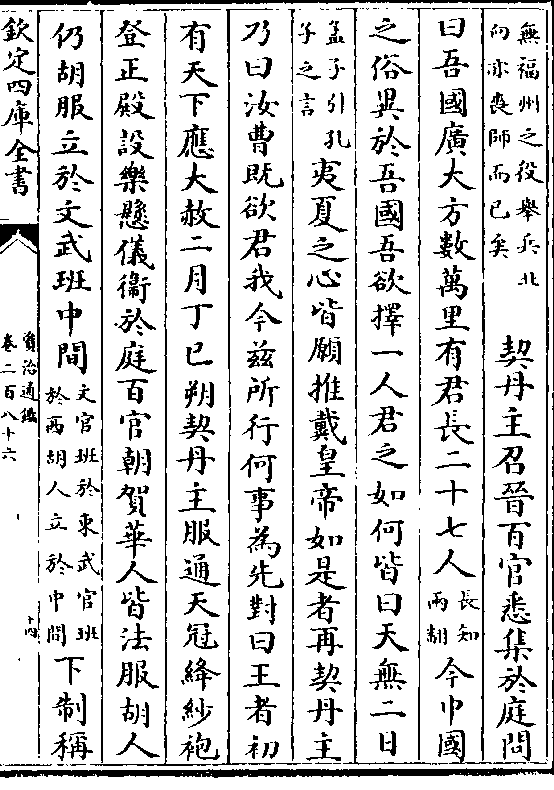 無福州之役舉兵北
向亦喪師而已矣
契丹主召晉百官悉集於庭問
曰吾國廣大方數萬里有君長二十七人
長知
兩翻
今中國
之俗異於吾國吾欲擇一人君之如何皆曰天無二日
孟子引孔
子之言
夷夏之心皆願推戴皇帝如是者再契丹主
乃曰汝曹既欲君我今兹所行何事為先對曰王者初
有天下應大赦二月丁巳朔契丹主服通天冠絳紗袍
登正殿設樂懸儀衞於庭百官朝賀華人皆法服胡人
仍胡服立於文武班中間
文官班於東武官班
於西胡人立於中間
下制稱
欽定四庫全書
資治通鑑
卷二百八十六
十四